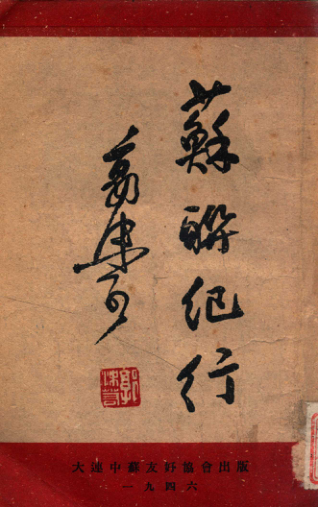 蘇聯紀行
郭沫若
郭沫若
大連中蘇友好協會出版
一九四六